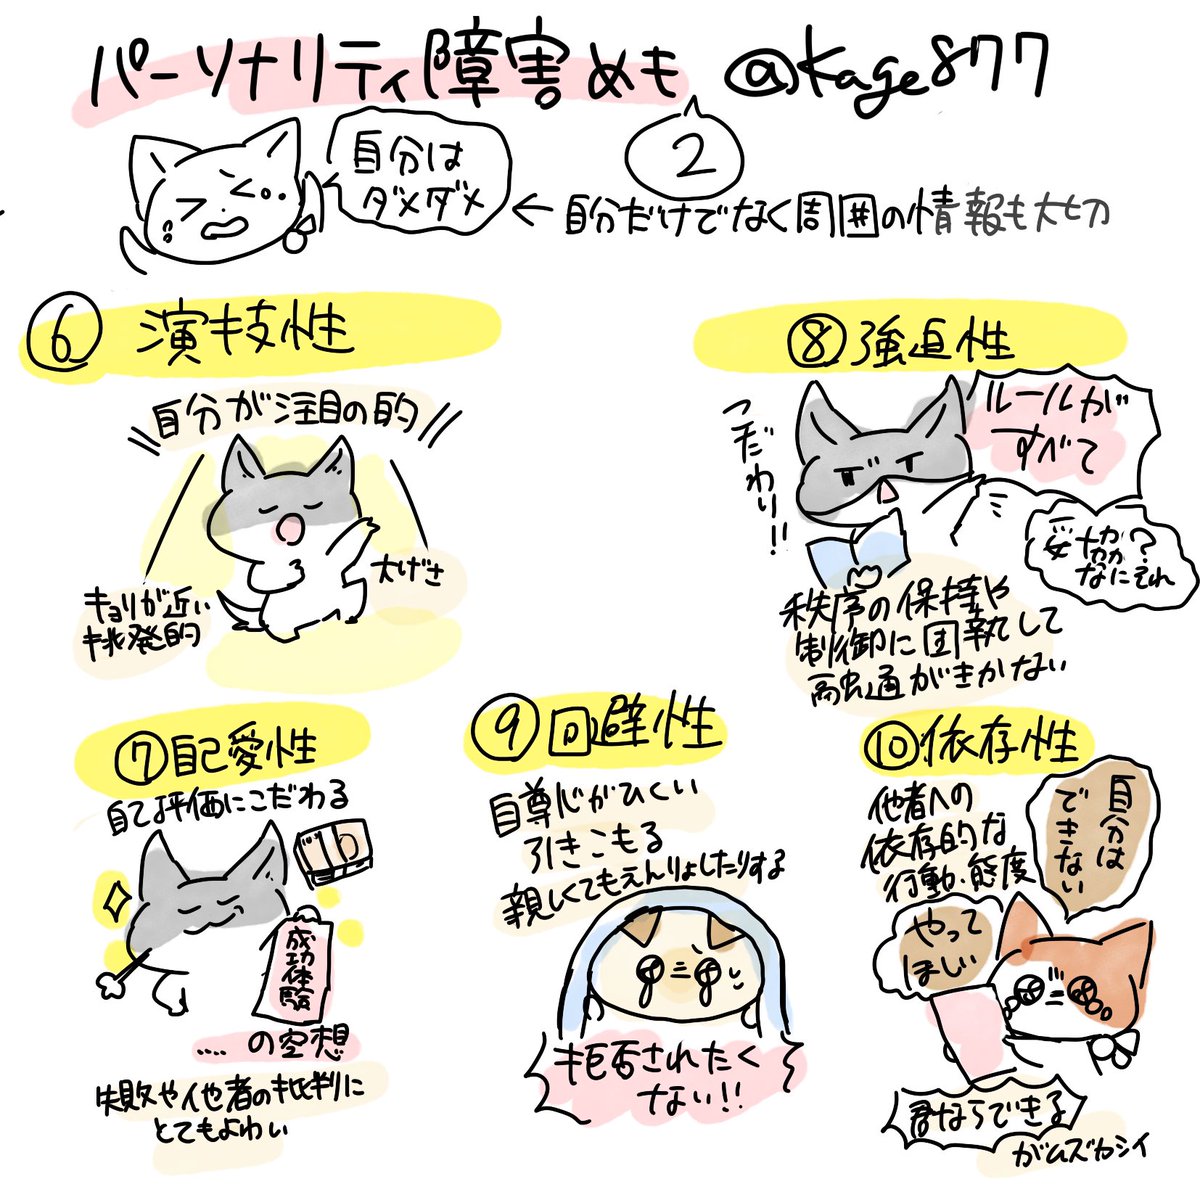 パーソナリティ障害めも @kage877
2
自分は
ダメダメ
← 自分だけでなく周囲の情報も大切
⑥ 演技性
自分が注目の的
大げさ
キョリが近い
挑発的
⑧強迫性
ルールが
すべて
こだわり!!
妥協?
なにそれ
秩序の保持や
制御に固執して
融通がきかない
⑦自己愛性
自己評価にこだわる
成功体験
....の空想
失敗や他者の批判に
とてもよわい
⑨回避性
自尊心がひくい
引きこもる
親しくてもえんりょしたりする
拒否されたく
ない!!
⑩依存性
他者への
依存的な
行動・態度
自分は
できない
やって
ほしい
君ならできる
がムズカシイ